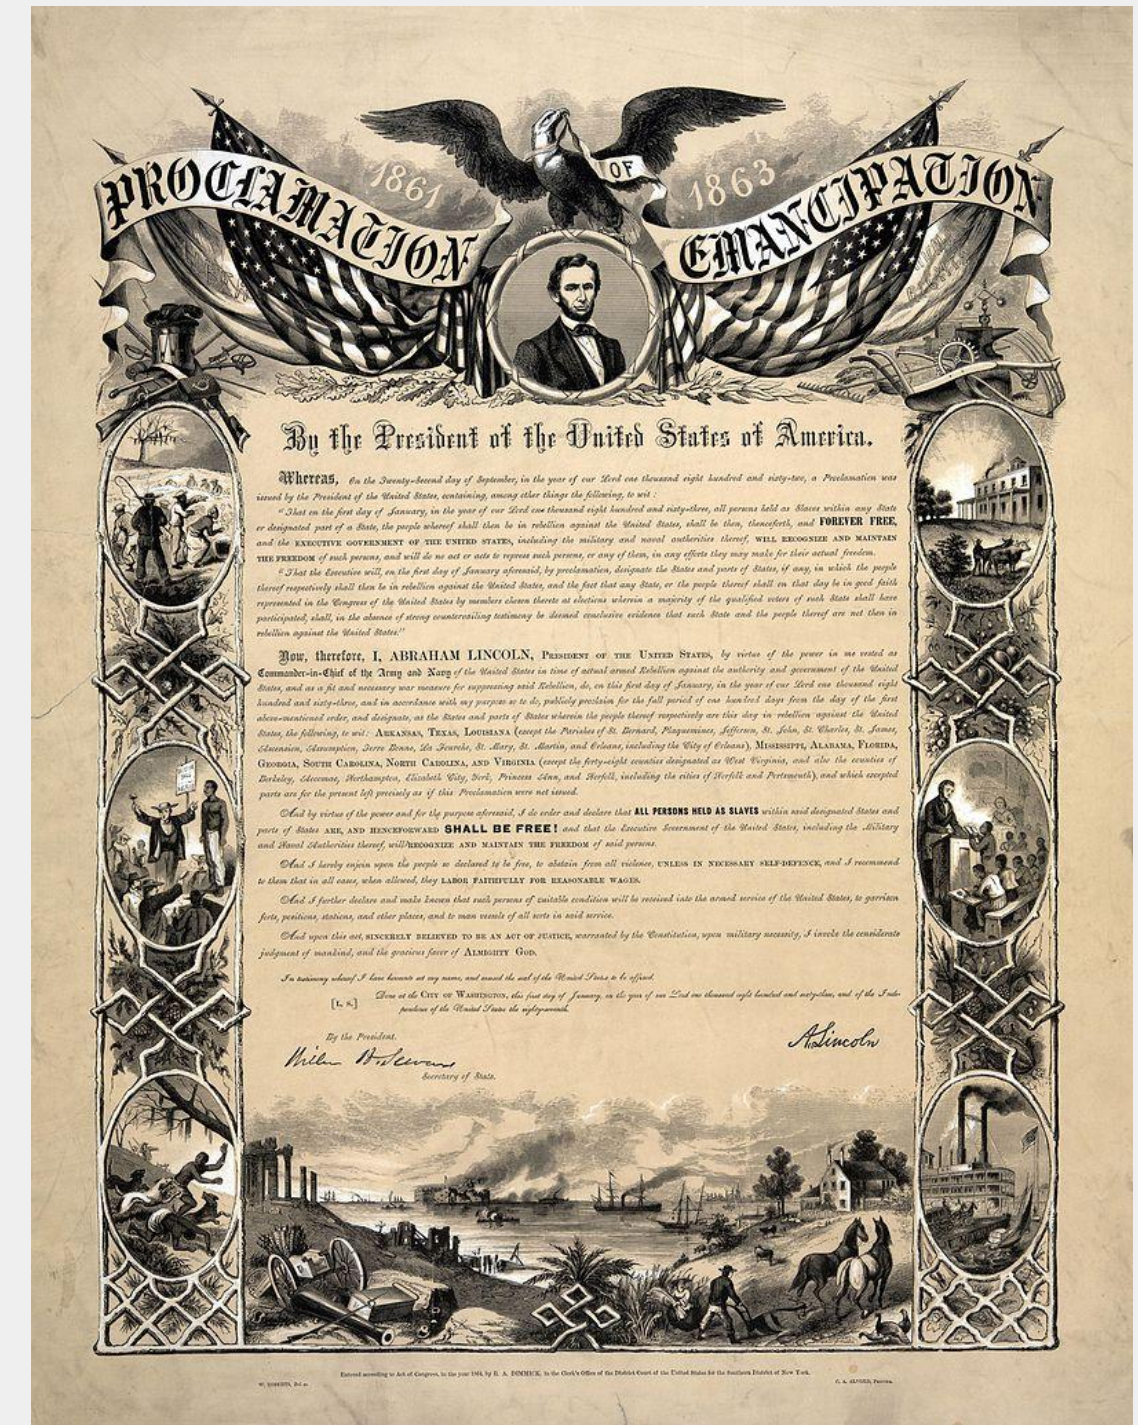 PROCLAMATION
1861
OF
1863
EMANCIPATION
By the President of the United States of America.
Whereas, On the Twenty-Second day of September, in the year of our Lord one thousand eight hundred and sixty-two, a Proclamation was
issued by the President of the United States, containing, among other things the following, to wit:
"That on the first day of January, in the year of our Lord one thousand eight hundred and sixty-three, all persons held as Slaves within any State
or designated part of a State, the people whereof shall then be in rebellion against the United States, shall be then, thenceforth, and FOREVER FREE,
and the EXECUTIVE GOVERNMENT OF THE UNITED STATES, including the military and naval authorities thereof, WILL RECOGNIZE AND MAINTAIN
THE FREEDOM of such persons, and will do no act or acts to repress such persons, or any of them, in any efforts they may make for their actual freedom.
"That the Executive will, on the first day of January aforesaid, by proclamation, designate the States and parts of States, if any, in which the people
thereof respectively shall then be in rebellion against the United States, and the fact that any State, or the people thereof shall on that day be in good faith
represented in the Congress of the United States by members chosen thereto at elections wherein a majority of the qualified voters of such State shall have
participated, shall, in the absence of strong countervailing testimony be deemed conclusive evidence that such State and the people thereof are not then in
rebellion against the United States."
Now, therefore, I, ABRAHAM LINCOLN, PRESIDENT OF THE UNITED STATES, by virtue of the power in me vested as
Commander-in-Chief of the Army and Navy of the United States in time of actual armed Rebellion against the authority and government of the United
States, and as a fit and necessary war measure for suppressing said Rebellion, do, on this first day of January, in the year of our Lord one thousand eight
hundred and sixty-three, and in accordance with my purpose so to do, publicly proclaim for the full period of one hundred days from the day of the first
above-mentioned order, and designate, as the States and parts of States wherein the people thereof respectively are this day in rebellion against the United
States, the following, to wit: ARKANSAS, TEXAS, LOUISIANA (except the Parishes of St. Bernard, Plaquemines, Jefferson, St. John, St. Charles, St. James,
Ascension, Assumption, Terre Bonne, La Fourche, St. Mary, St. Martin, and Orleans, including the City of Orleans), MISSISSIPPI, ALABAMA, FLORIDA,
GEORGIA, SOUTH CAROLINA, NORTH CAROLINA, AND VIRGINIA (except the forty-eight counties designated as West Virginia, and also the counties of
Berkeley, Accomac, Northampton, Elizabeth City, York, Princess Ann, and Norfolk, including the cities of Norfolk and Portsmouth), and which excepted
parts are for the present left precisely as if this Proclamation were not issued.
And by virtue of the power and for the purpose aforesaid, I do order and declare that ALL PERSONS HELD AS SLAVES within said designated States and
parts of States ARE, AND HENCEFORWARD SHALL BE FREE! and that the Executive Government of the United States, including the Military
and Naval Authorities thereof, will RECOGNIZE AND MAINTAIN THE FREEDOM of said persons.
And I hereby enjoin upon the people so declared to be free, to abstain from all violence, UNLESS IN NECESSARY SELF-DEFENCE, and I recommend
to them that in all cases, when allowed, they LABOR FAITHFULLY FOR REASONABLE WAGES.
And I further declare and make known that such persons of suitable condition will be received into the armed service of the United States, to garrison
forts, positions, stations, and other places, and to man vessels of all sorts in said service.
And upon this act, SINCERELY BELIEVED TO BE AN ACT OF JUSTICE, warranted by the Constitution, upon military necessity, I invoke the considerate
judgment of mankind, and the gracious favor of ALMIGHTY GOD.
In testimony whereof I have hereunto set my name, and caused the seal of the United States to be affixed.
[L. S.] Done at the CITY OF WASHINGTON, this first day of January, in the year of our Lord one thousand eight hundred and sixty-three, and of the Inde-
pendence of the United States the eighty-seventh.
By the President.
A. Lincoln
William H. Seward
Secretary of State.
Entered according to Act of Congress, in the year 1864, by R. A. DIMMICK, in the Clerk's Office of the District Court of the United States for the Southern District of New York.
W. ROBERTS, Del.
C. A. ALVORD, Printer.